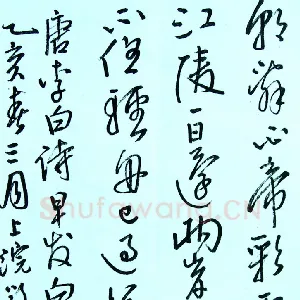 朝辞白帝彩
江陵一日还两岸
不住轻舟已过
唐李白诗早发白
乙亥春三月上浣
Shufawang.CN